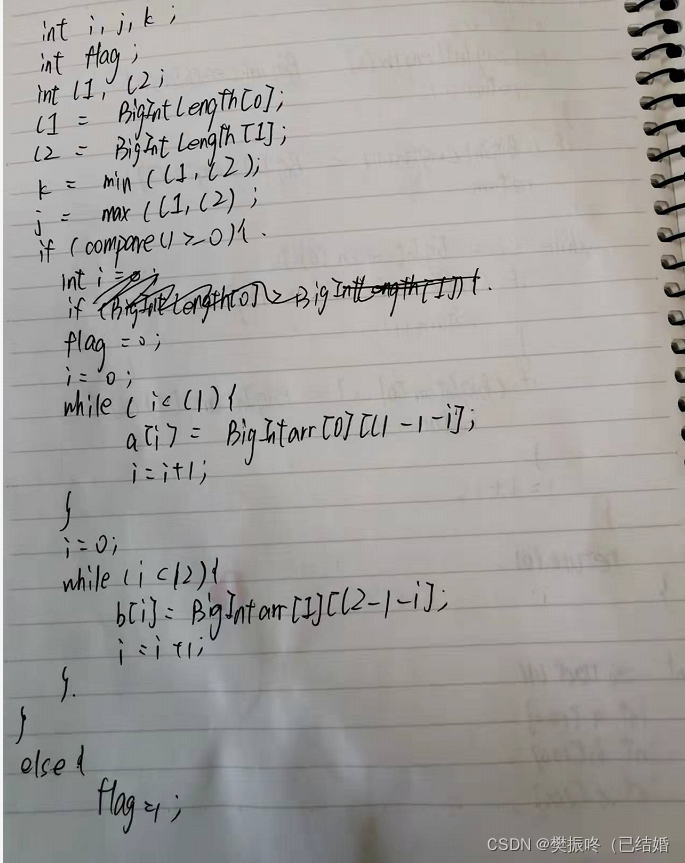 int i, j, k ;
int flag ;
int l1, l2 ;
l1 = BigIntLength[0];
l2 = BigIntLength[1];
k = min (l1, l2);
j = max (l1, l2) ;
if (compare() >= 0) {
int i = 0;
if (BigIntLength[0] > BigIntLength[1]) {
flag = 0;
i = 0;
while ( i < l1 ) {
a[i] = BigIntarr[0][l1-1-i];
i = i+1;
}
i = 0;
while (i < l2) {
b[i] = BigIntarr[1][l2-1-i];
i = i+1;
}
}
else {
flag = 1 ;
CSDN @樊振咚（已结婚